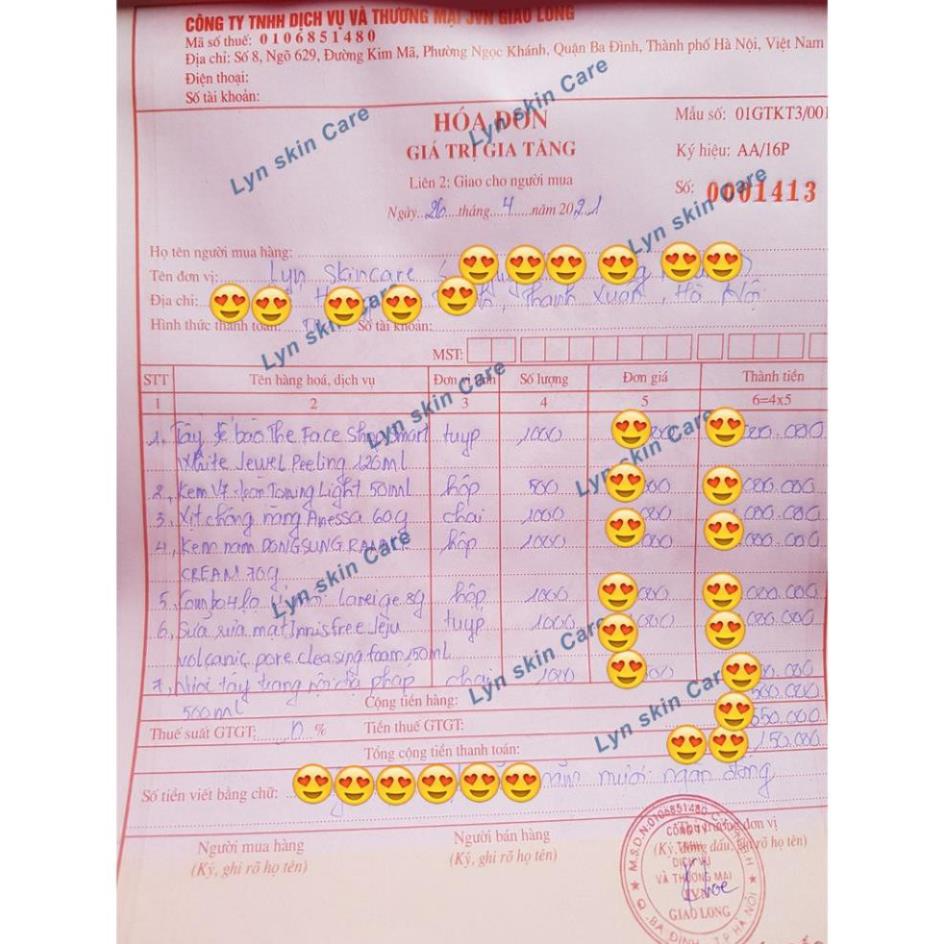 CÔNG TY TNHH DỊCH VỤ VÀ THƯƠNG MẠI JVN GIAO LONG
Mã số thuế: 0106851480
Địa chỉ: Số 8, Ngõ 629, Đường Kim Mã, Phường Ngọc Khánh, Quận Ba Đình, Thành phố Hà Nội, Việt Nam
Điện thoại:
Số tài khoản:
HÓA ĐƠN
GIÁ TRỊ GIA TĂNG
Liên 2: Giao cho người mua
Ngày 26 tháng 4 năm 2021
Mẫu số: 01GTKT3/001
Ký hiệu: AA/16P
Số: 0001413
Lyn skin Care
Lyn skin Care
Lyn skin Care
Họ tên người mua hàng:
Tên đơn vị: Lyn Skincare
Địa chỉ: Thanh Xuân, Hà Nội
Hình thức thanh toán: Số tài khoản:
Lyn skin Care
MST:
STT Tên hàng hoá, dịch vụ Đơn vị Số lượng Đơn giá Thành tiền
1 2 3 4 5 6=4x5
1, Tẩy tế bào The Face Shop Smart tuýp 1000 000.000
White Jewel Peeling 120ml
2, Kem V7 Toning Light 50ml hộp 500 000.000
3, Xịt chống nắng Anessa 60g chai 1000 000.000
4, Kem nám DONGSUNG hộp 1000 000.000
CREAM 70g
5, Combo 8g hộp 1000 000.000
6, Sữa rửa mặt Innisfree Jeju tuýp 1000 000.000
volcanic pore cleasing foam 150ml
7, tẩy trang pháp chai 000.000
500ml
Lyn skin Care
Lyn skin Care
Lyn skin Care
Lyn skin Care
Lyn skin Care
Cộng tiền hàng: 500.000
Thuế suất GTGT: % Tiền thuế GTGT: 650.000
Tổng cộng tiền thanh toán: 150.000
Số tiền viết bằng chữ: năm mươi ngàn đồng
Người mua hàng
(Ký, ghi rõ họ tên)
Người bán hàng
(Ký, ghi rõ họ tên)
đơn vị
(Ký, đóng dấu, ghi rõ họ tên)
M.S.D.N:0106851480
CÔNG TY
TNHH
DỊCH VỤ
VÀ THƯƠNG MẠI
JVN
GIAO LONG
BA ĐÌNH - T.P HÀ NỘI